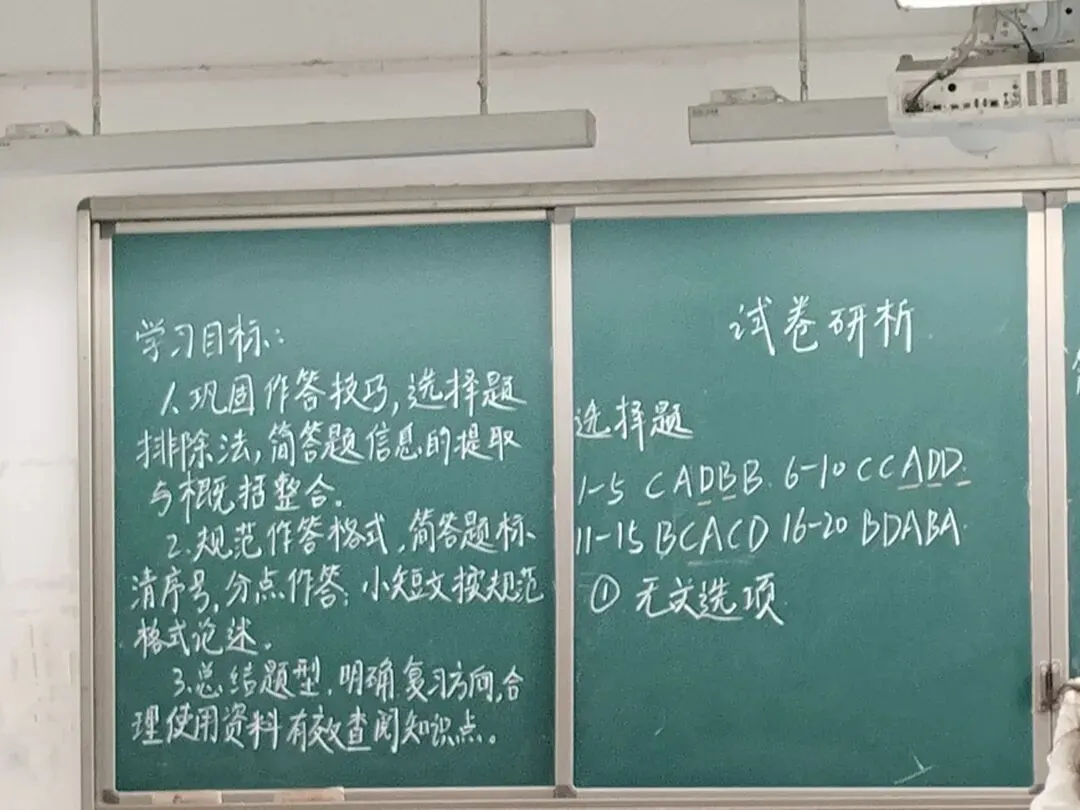 学习目标:
1.巩固作答技巧,选择题
排除法,简答题信息的提取
与概括整合.
2.规范作答格式,简答题标
清序号,分点作答;小短文按规范
格式论述。
3.总结题型,明确复习方向,合
理使用资料有效查阅知识点。
试卷研析
选择题
1-5 CADBB. 6-10 CCADD.
11-15 BCACD 16-20 BDABA
① 无文选项